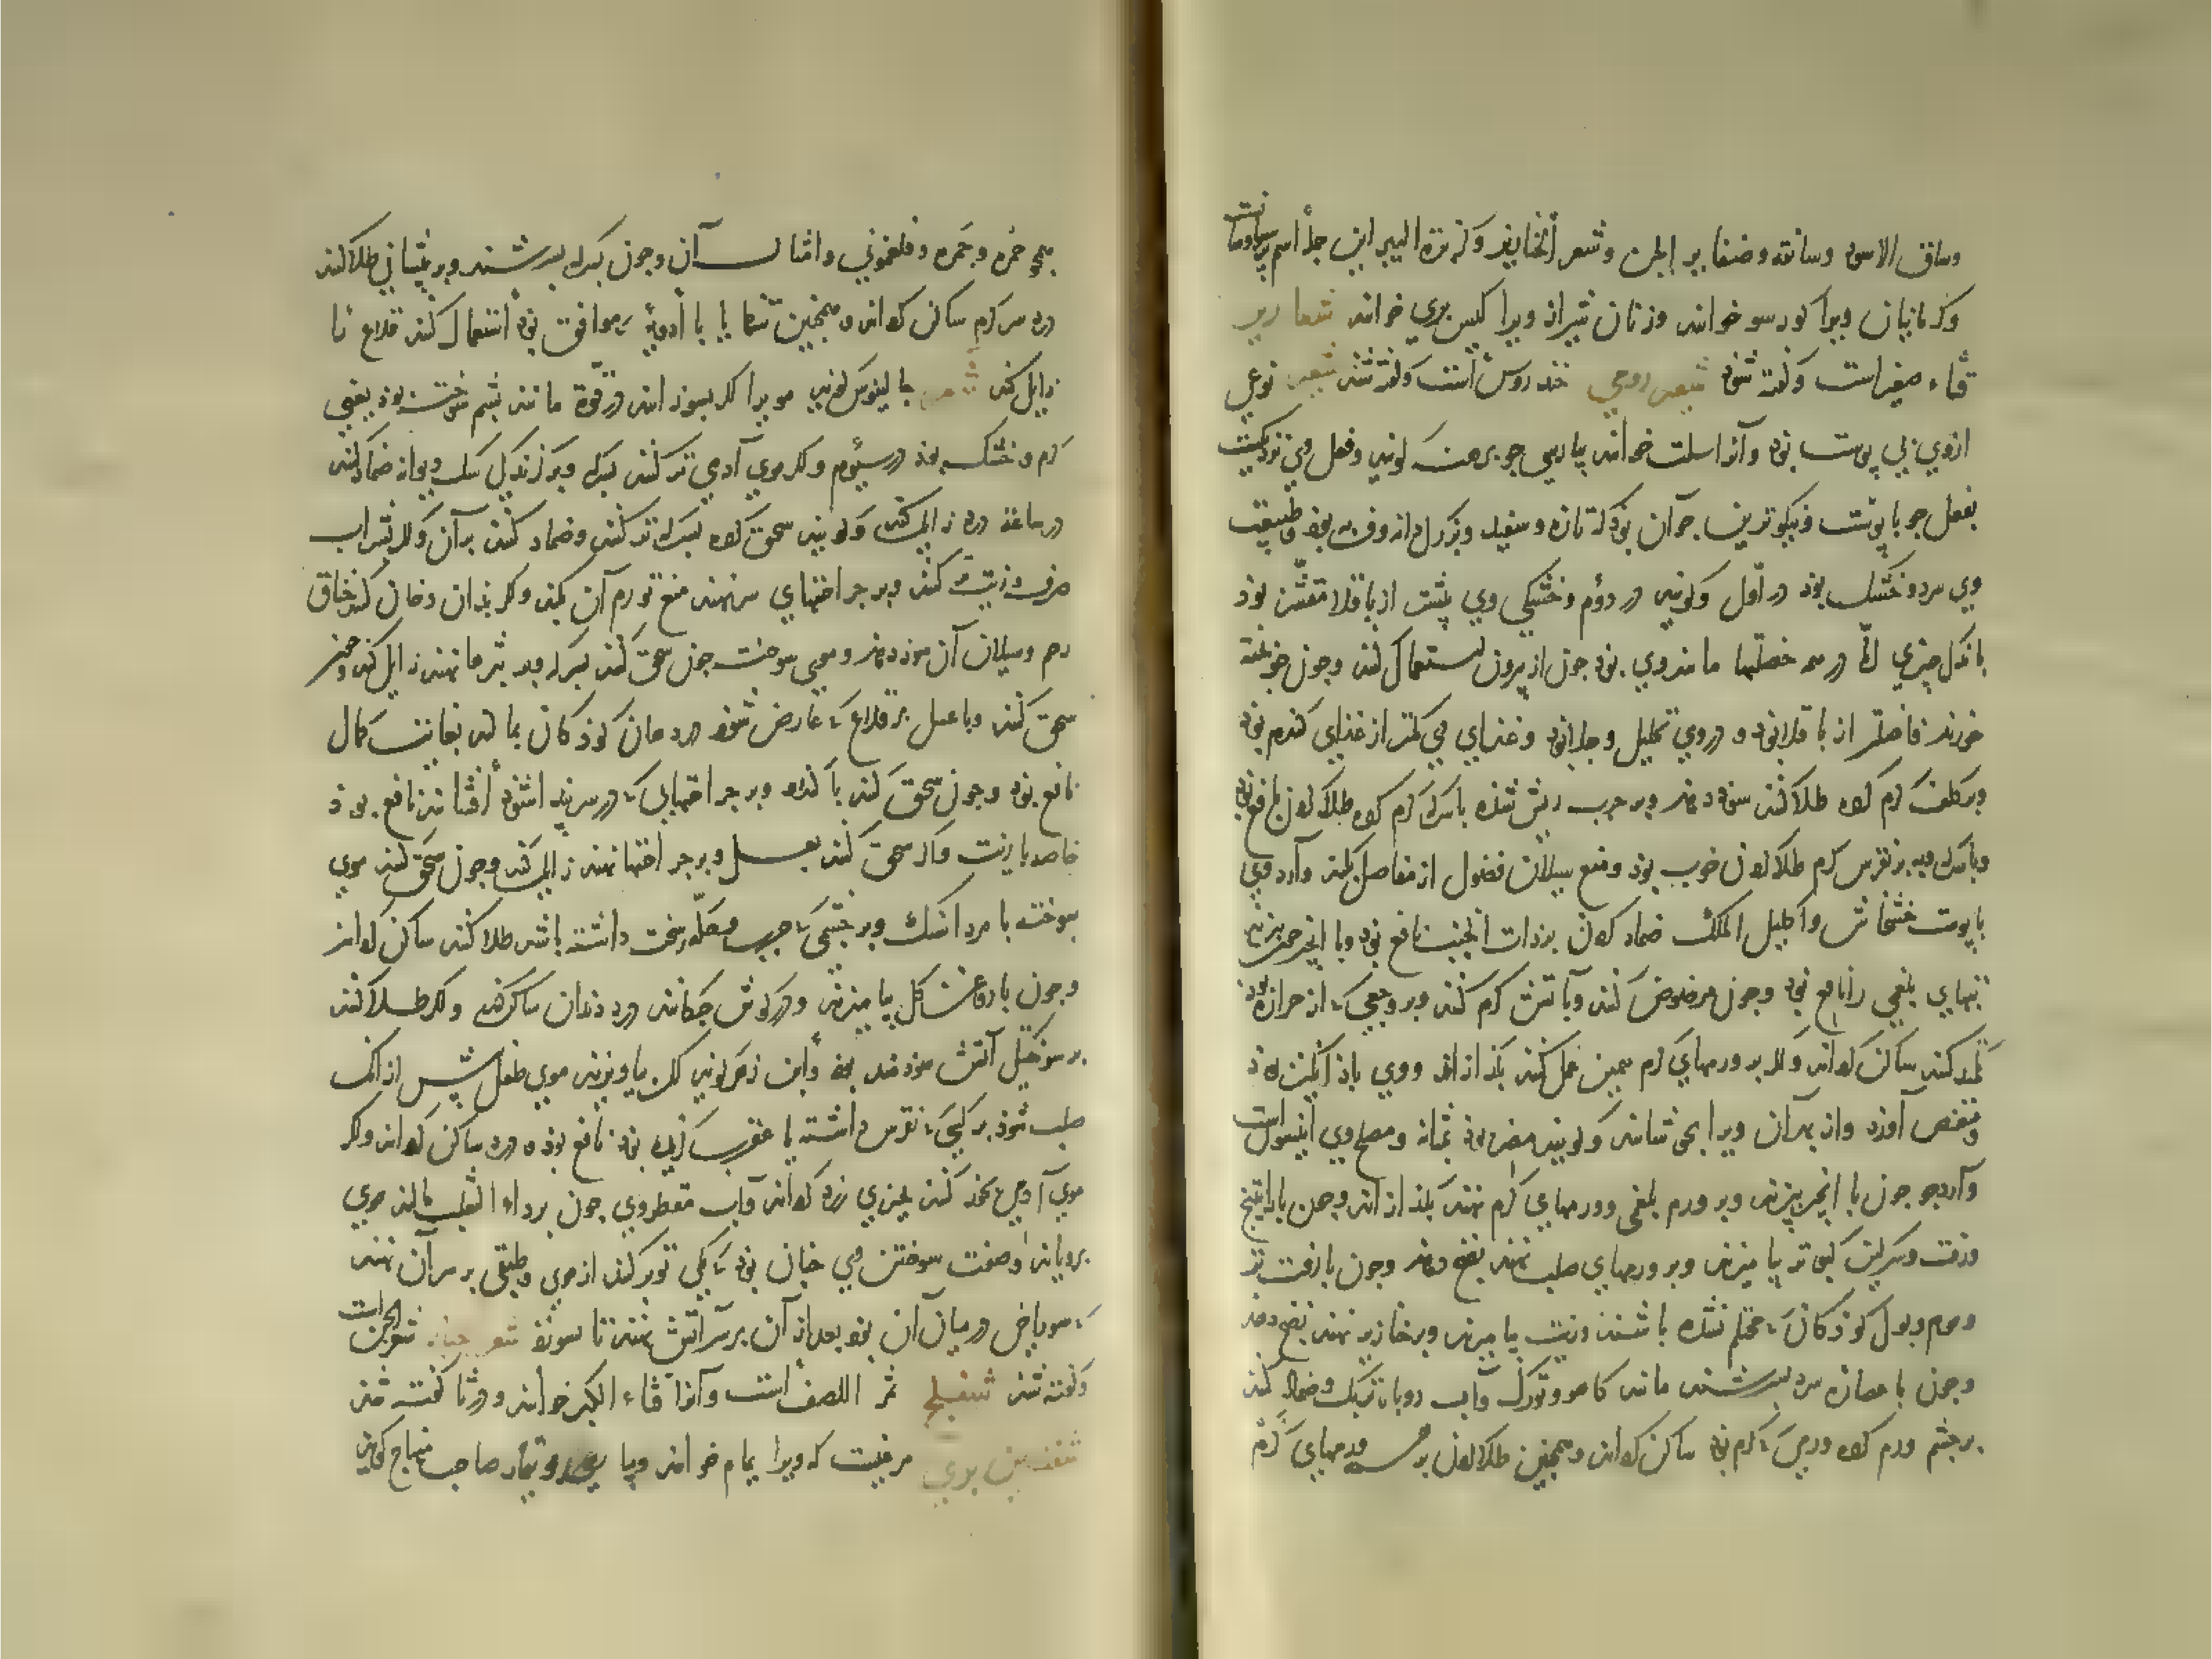 وساق الاسود وسانقه وضفایر الجن وشعر الخنازیر وکزبرة البیر این جمله اسم پرسیاوشانست
وکرمانیان ویرا کورسو خوانند وزنان شیراز ویرا کیس بری خوانند شعاریر
قثاء صغیر است وکفته شود شعیر رومی خندروس است وکفته شد شعیر نوعی
ازوی بی پوست بود وآنرا سلت خوانند بپارسی جو برهنه کویند وفعل وی نزدیکست
بفعل جو با پوست ونیکوترین جو آن بود که تازه وسفید وبزرک دانه وفربه بود وطبیعت
وی سرد وخشک بود در اول وکویند در دوم وخشکی وی بیشتر از باقلا مقشر بود
باندک چیزی اما در سه خصلتها مانند وی بود چون از بیرون استعمال کنند وچون پخته
خورند فاضلتر از باقلا بود ودر وی تحلیل وجلا بود وغذای وی کمتر از غذای کندم بود
وبر کلف کرم کرده طلا کنند سود دهد وبر جرب ریش شده با سرکه کرم کرده طلا کردن نافع بود
وبا سرکه وبه بر نقرس کرم طلا کردن خوب بود ومنع سیلان فضول از مفاصل بکند وآرد وی
با پوست خشخاش واکلیل الملک ضماد کردن بر ذات الجنب نافع بود وبا انجیر چون بپزند
تبهای بلغمی را نافع بود وچون مرضوض کنند وبآتش کرم کنند وبر وجعی که از حرارت بود
تکمید کنند ساکن کرداند وکر بر ورمهای کرم همین عمل کنند بکدازاند ووی باد انکیز بود
ومغص آورد واز بهر آن ویرا بجوشانند وکویند مضر بود بمثانه ومصلح وی انیسون است
وآرد جو چون با انجیر بپزند وبر ورم بلغمی وورمهای کرم نهند بکدازاند وچون با راتینج
وزفت وسرکین کبوتر بیامیزند وبر ورمهای صلب نهند نضج دهد وچون با زفت تر
وموم وبول کودکان که محتلم نشده باشند وزیت بیامیزند وبر خنازیر نهند نضج دهد
وچون با عصاره سرد بسرشند مانند کاهو وتورک وآب روباه تربک وضماد کنند
بر چشم ورم کرده ورمی که کرم بود ساکن کرداند وهمچنین طلا کردن بر همه ورمهای کرم
همچو حمره وجمره وفلغمونی وامثال آن وچون بسرکه بسرشند وبر پیشانی طلا کنند
درد سر کرم ساکن کرداند وهمچنین تنها یا با ادویه که موافق بود استعمال کنند قلاع را
زایل کند شعر جالینوس کوید موی را اکر بسوزانند در قوة مانند پشم سوخته بود یعنی
کرم وخشک بود در سیوم وکر موی آدمی تر کنند بسرکه وبر کزیدکی سک دیوانه ضماد کنند
در ساعة درد زایل کند وکویند سحق کرده بسرکه تر کنند وضماد کنند بر آن وکر بشراب
صرف وزیت تر کنند وبر جراحتهای سر نهند منع تورم آن بکند وکر بدان دخان کنند خناق
رحم وسیلان آن سود دهد وموی سوخته چون سحق کنند بسرکه وبر بثرها نهند زایل کند وچون
سحق کنند وبا عسل بر قلاع که عارض شود در دهان کودکان بمالند بغایت کمال
نافع بود وچون سحق کنند با کندر وبر جراحتهایی که در سر پیدا شود افشانند نافع بود
خاصه با زیت واکر سحق کنند بعسل وبر جراحتها نهند زایل کند وچون سحق کنند موی
سوخته با مرداسنک وبر چشمی که جرب وحکه سخت داشته باشد طلا کنند ساکن کرداند
وچون با روغن کل بیامیزند ودر کوش چکانند درد دندان ساکن کند وکر طلا کنند
بر سوختکی آتش سودمند بود وابن زهر کوید کر بیاویزند موی طفل پیش از آنک
صلب شود بر کسی که نقرس داشته یا عقرب کزیده بود نافع بود ودرد ساکن کرداند وکر
موی آدمی بخور کنند بچیزی زرد کرداند وآب مقطر وی چون بر داء الثعلب مالند موی
برویاند وصفت سوختن وی چنان بود که دیکی نو پر کنند از موی وطبقی بر سر آن نهند
که سوراخ در میان آن بود بعد از آن بر سر آتش نهند تا بسوزد شعر جن شعر الجن است
وکفته شد شفلح ثمر اللصف است وآنرا قثاء الکبر خوانند ودر ثا کفته شد
شفنین بری مرغیست که ویرا یمام خوانند وبپارسی صاحب منهاج کوید